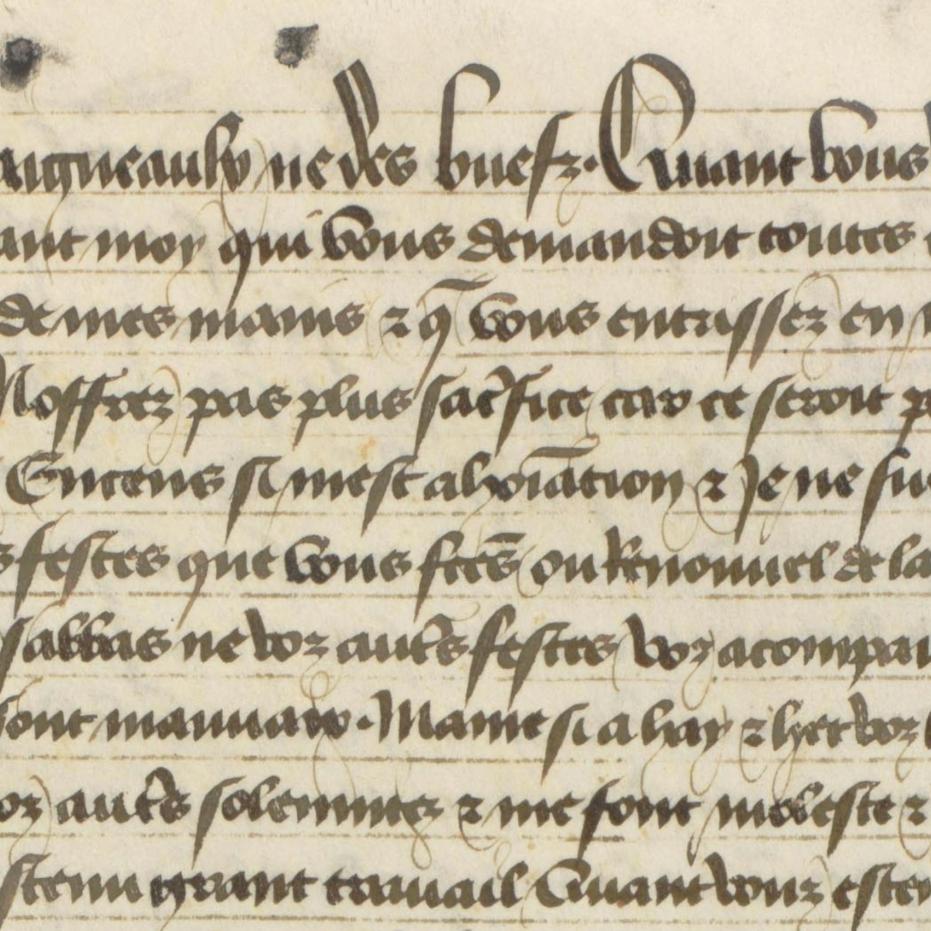 aigneaulx ne des buefz. Quant vous
ant moy qui vous demandoit toutes
de mes mains ⁊ q̄ vous entrissez en
Noffrez pas plus sacͬfice car ce seroit
Encens si mest abhoiācion ⁊ Je ne
festes que vous fcēs ou Renouuel de la
sabbas ne voz autēs festes voz acompai
sont mauuaix. Mame si a hay ⁊ het voz
oz autēs solemnitez ⁊ me font moleste ⁊
stenu grant trauail Quant vouz esten